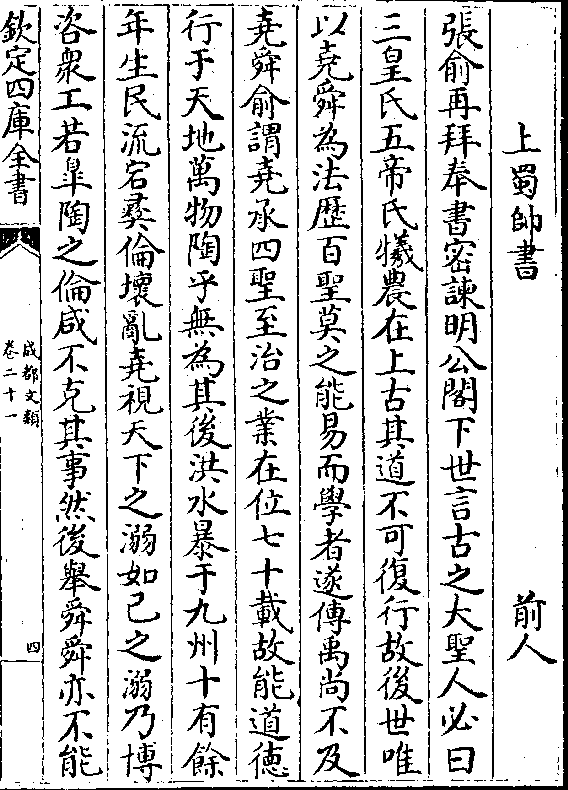 上蜀帥書　前人
張俞再拜奉書密諫明公閣下世言古之大聖人必曰
三皇氏五帝氏犧農在上古其道不可復行故後世唯
以堯舜為法歷百聖莫之能易而學者遂傳禹尚不及
堯舜俞謂堯承四聖至治之業在位七十載故能道德
行于天地萬物陶乎無為其後洪水暴于九州十有餘
年生民流宕彞倫壞亂堯視天下之溺如己之溺乃博
咨衆工若臯陶之倫咸不克其事然後舉舜舜亦不能
欽定四庫全書
成都文類
卷二十一
四